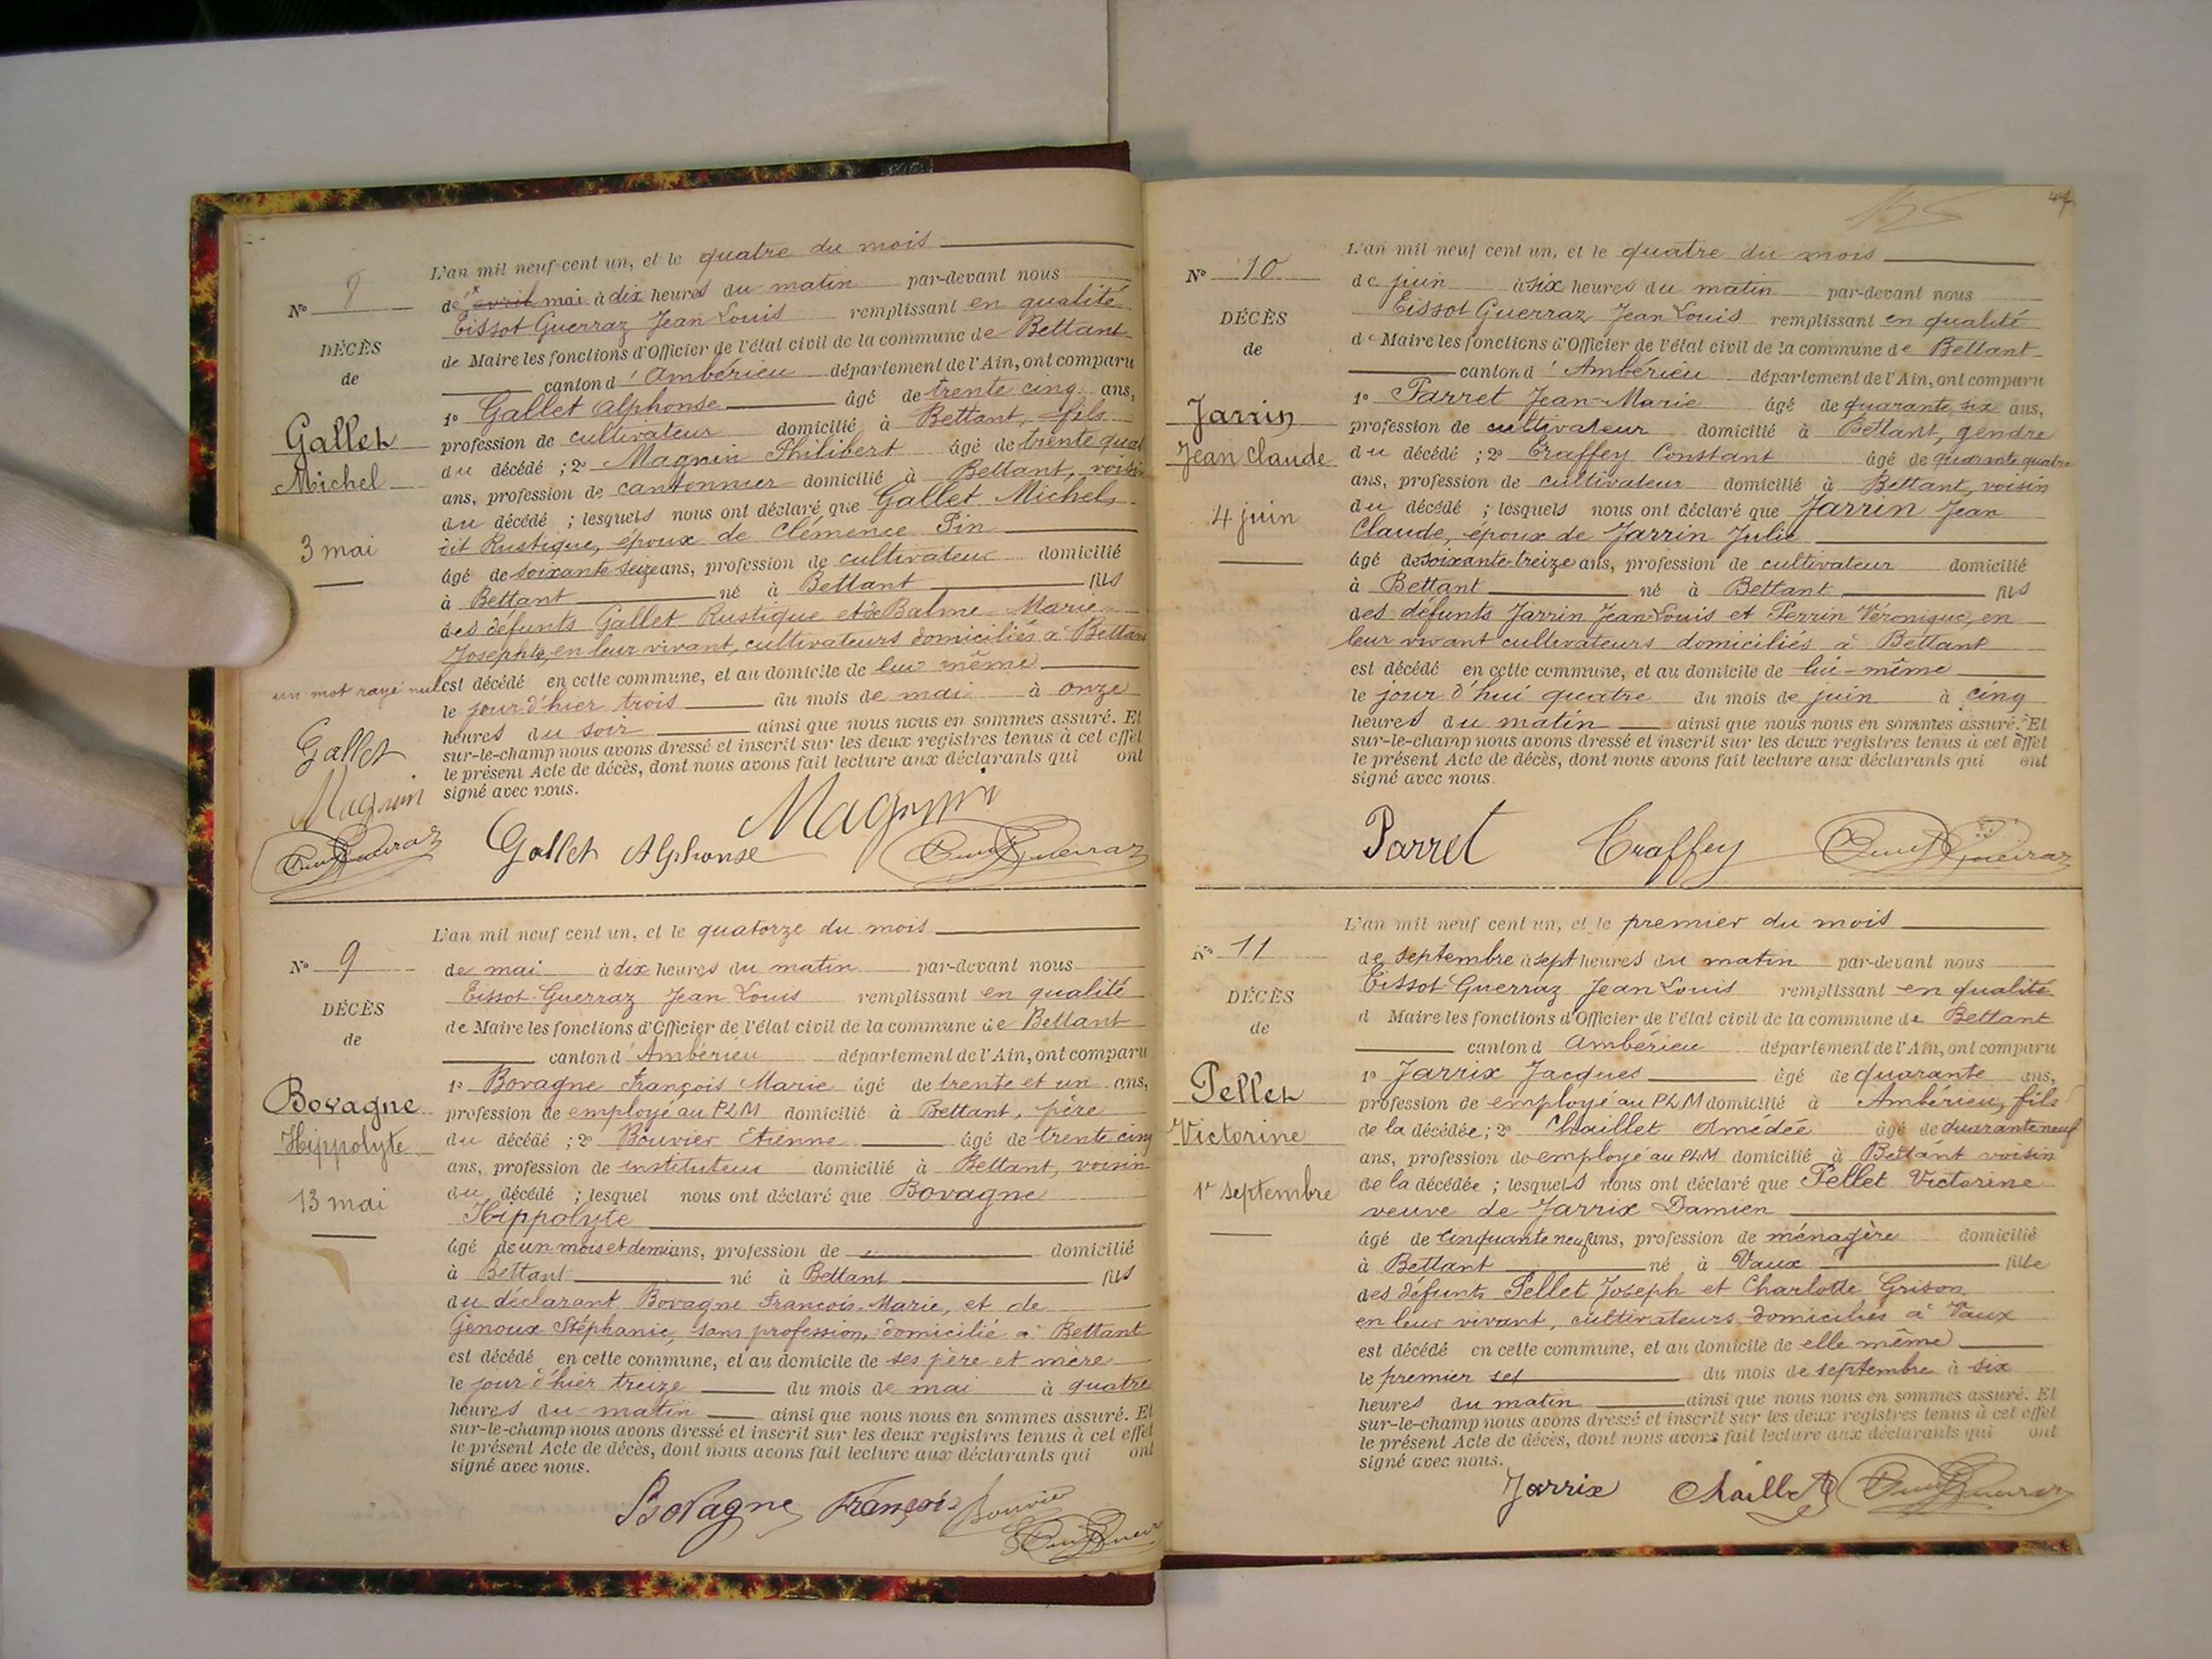 L'an mil neuf cent un, et le quatre du mois
N° 8
de avril mai à dix heures du matin par-devant nous
Tissot Guerraz Jean Louis remplissant en qualité
DÉCÈS
de Maire les fonctions d'Officier de l'état civil de la commune de Bettant
de
canton d'Ambérieu département de l'Ain, ont comparu
1° Gallet Alphonse âgé de trente cinq ans,
Gallet
profession de cultivateur domicilié à Bettant, fils
Michel
du décédé ; 2° Magnin Philibert âgé de trente quat
ans, profession de cantonnier domicilié à Bettant, voisin
du décédé ; lesquels nous ont déclaré que Gallet Michel,
3 mai
dit Rustique, époux de Clémence Pin
âgé de soixante seize ans, profession de cultivateur domicilié
à Bettant né à Bettant fils
des défunts Gallet Rustique et de Balme Marie
Josephte, en leur vivant, cultivateurs domiciliés à Bettant
un mot rayé nul
est décédé en cette commune, et au domicile de lui-même
le jour d'hier trois du mois de mai à onze
heures du soir ainsi que nous nous en sommes assuré. Et
sur-le-champ nous avons dressé et inscrit sur les deux registres tenus à cet effet
le présent Acte de décès, dont nous avons fait lecture aux déclarants qui ont
signé avec nous.
Gallet
Magnin
Gallet Alphonse Magnin
L'an mil neuf cent un, et le quatorze du mois
N° 9
de mai à dix heures du matin par-devant nous
Tissot-Guerraz Jean Louis remplissant en qualité
DÉCÈS
de Maire les fonctions d'Officier de l'état civil de la commune de Bettant
de
canton d'Ambérieu département de l'Ain, ont comparu
1° Bovagne François Marie âgé de trente et un ans,
Bovagne
profession de employé au PLM domicilié à Bettant, père
Hippolyte
du décédé ; 2° Bouvier Etienne âgé de trente cinq
ans, profession de instituteur domicilié à Bettant, voisin
13 mai
du décédé ; lesquel nous ont déclaré que Bovagne
Hippolyte
âgé de un mois et demi ans, profession de domicilié
à Bettant né à Bettant fils
du déclarant Bovagne François-Marie, et de
Genoux Stéphanie, sans profession, domicilié à Bettant
est décédé en cette commune, et au domicile de ses père et mère
le jour d'hier treize du mois de mai à quatre
heures du matin ainsi que nous nous en sommes assuré. Et
sur-le-champ nous avons dressé et inscrit sur les deux registres tenus à cet effet
le présent Acte de décès, dont nous avons fait lecture aux déclarants qui ont
signé avec nous.
Bovagne François Bouvier
L'an mil neuf cent un, et le quatre du mois
N° 10
de juin à six heures du matin par-devant nous
Tissot Guerraz Jean Louis remplissant en qualité
DÉCÈS
de Maire les fonctions d'Officier de l'état civil de la commune de Bettant
de
canton d'Ambérieu département de l'Ain, ont comparu
1° Parret Jean-Marie âgé de quarante six ans,
Jarrin
profession de cultivateur domicilié à Bettant, gendre
Jean Claude
du décédé ; 2° Traffey Constant âgé de quarante quatre
ans, profession de cultivateur domicilié à Bettant, voisin
4 juin
du décédé ; lesquels nous ont déclaré que Jarrin Jean
Claude, époux de Jarrin Julie
âgé de soixante treize ans, profession de cultivateur domicilié
à Bettant né à Bettant fils
des défunts Jarrin Jean-Louis et Perrin Véronique, en
leur vivant cultivateurs domiciliés à Bettant
est décédé en cette commune, et au domicile de lui-même
le jour d'hui quatre du mois de juin à cinq
heures du matin ainsi que nous nous en sommes assuré. Et
sur-le-champ nous avons dressé et inscrit sur les deux registres tenus à cet effet
le présent Acte de décès, dont nous avons fait lecture aux déclarants qui ont
signé avec nous.
Parret Traffey
L'an mil neuf cent un, et le premier du mois
N° 11
de septembre à sept heures du matin par-devant nous
Tissot-Guerraz Jean Louis remplissant en qualité
DÉCÈS
d Maire les fonctions d'Officier de l'état civil de la commune de Bettant
de
canton d Ambérieu département de l'Ain, ont comparu
1° Jarrix Jacques âgé de quarante ans,
Pellet
profession de employé au PLM domicilié à Ambérieu, fils
Victorine
de la décédée ; 2° Chaillet Amédée âgé de quarante neuf
ans, profession de employé au PLM domicilié à Bettant voisin
1er septembre
de la décédée ; lesquels nous ont déclaré que Pellet Victorine
veuve de Jarrix Damien
âgé de cinquante neuf ans, profession de ménagère domicilié
à Bettant né à Vaux fille
des défunts Pellet Joseph et Charlotte Grison
en leur vivant, cultivateurs domiciliés à Vaux
est décédé en cette commune, et au domicile de elle même
le premier set du mois de septembre à six
heures du matin ainsi que nous nous en sommes assuré. Et
sur-le-champ nous avons dressé et inscrit sur les deux registres tenus à cet effet
le présent Acte de décès, dont nous avons fait lecture aux déclarants qui ont
signé avec nous.
Jarrix Chaillet